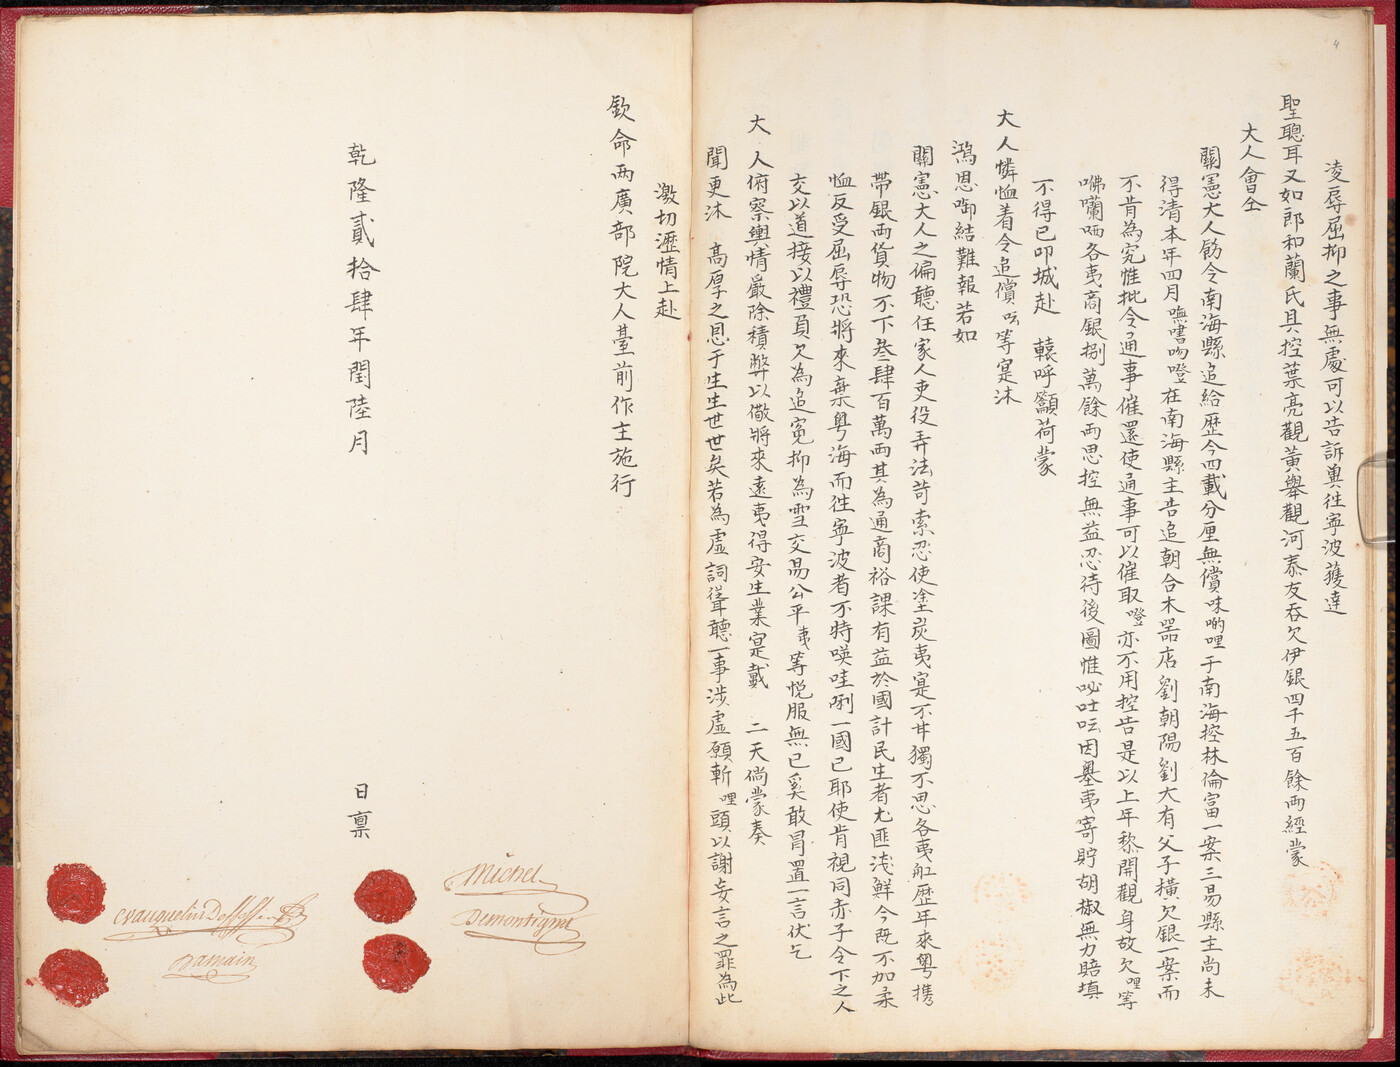 4
凌辱屈抑之事無處可以告訴與徃寧波獲達
聖聰耳又如郎和蘭氏具控葉亮觀黃舉觀河泰友吞欠伊銀四千五百餘両經蒙
大人會仝
關憲大人飭令南海縣追給歷今四載分厘無償味啲哩于南海控林倫富一案三易縣主尚未
得清本年四月嘸嘼吻噔在南海縣主告追朝合木器店劉朝陽劉大有父子横欠銀一案而
不肯為究惟批令通事催還使通事可以催取噔亦不用控告是以上年黎開觀身故欠哩等
咈囒哂各夷商銀捌萬餘両思控無益忍待後圖惟咇吐呍因墨夷寄貯胡椒無力賠填
不得已叩城赴 轅呼籲荷蒙
大人憐恤着令追償呍等寔沐
鴻恩啣結難報若如
關憲大人之偏聽任家人吏役弄法苛索忍使塗炭夷寔不甘獨不思各夷舡歷年來粵携
帶銀両貨物不下叁肆百萬両其為通商裕課有益於國計民生者尢匪淺鮮今既不加柔
恤反受屈辱恐將來棄粵海而徃寧波者不特㗲哇唎一國已耶使肯視同赤子令下之人
交以道接以禮負欠為追寃抑為雪交易公平夷等悅服無已奚敢冒置一言伏乞
大 人俯察輿情嚴除積弊以儆將來遠夷得安生業寔戴 二天倘蒙奏
聞更沐 高厚之恩于生生世世矣若為虛詞聳聽一事涉虛願斬哩頭以謝妄言之罪為此
激切瀝情上赴
欽命両廣部院大人臺前作主施行
乾隆貳拾肆年閏陸月 日稟
Michel
Demontigné
Damain